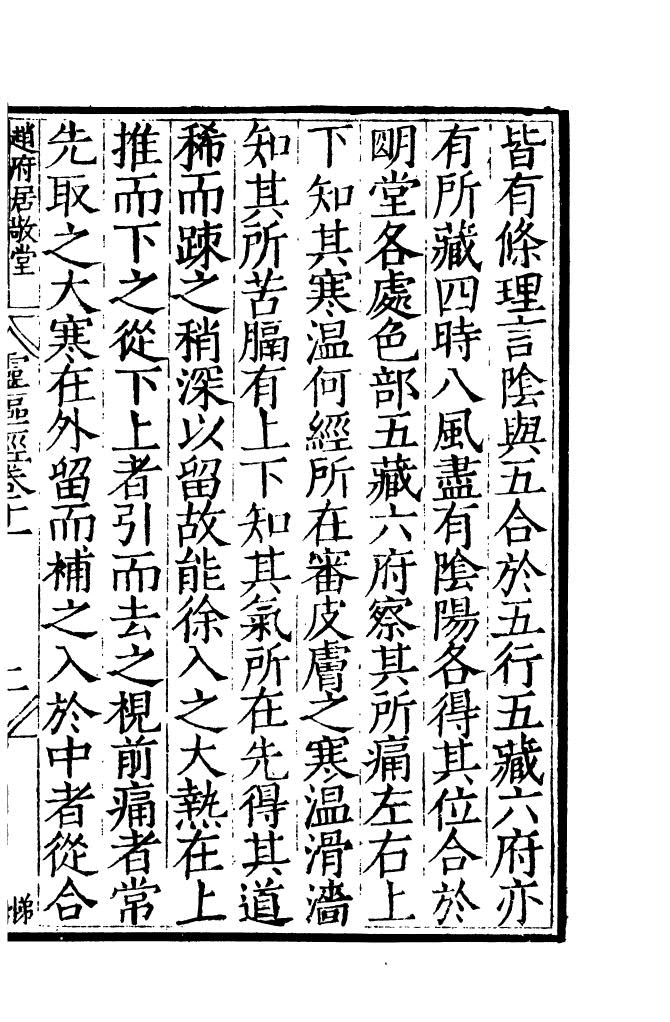 皆有條理言陰與五合於五行五藏六府亦
有所藏四時八風盡有陰陽各得其位合於
明堂各處色部五藏六府察其所痛左右上
下知其寒温何經所在審皮膚之寒温滑濇
知其所苦膈有上下知其氣所在先得其道
稀而踈之稍深以留故能徐入之大熱在上
推而下之從下上者引而去之視前痛者常
先取之大寒在外留而補之入於中者從合
趙府居敬堂 靈樞經卷十一 二